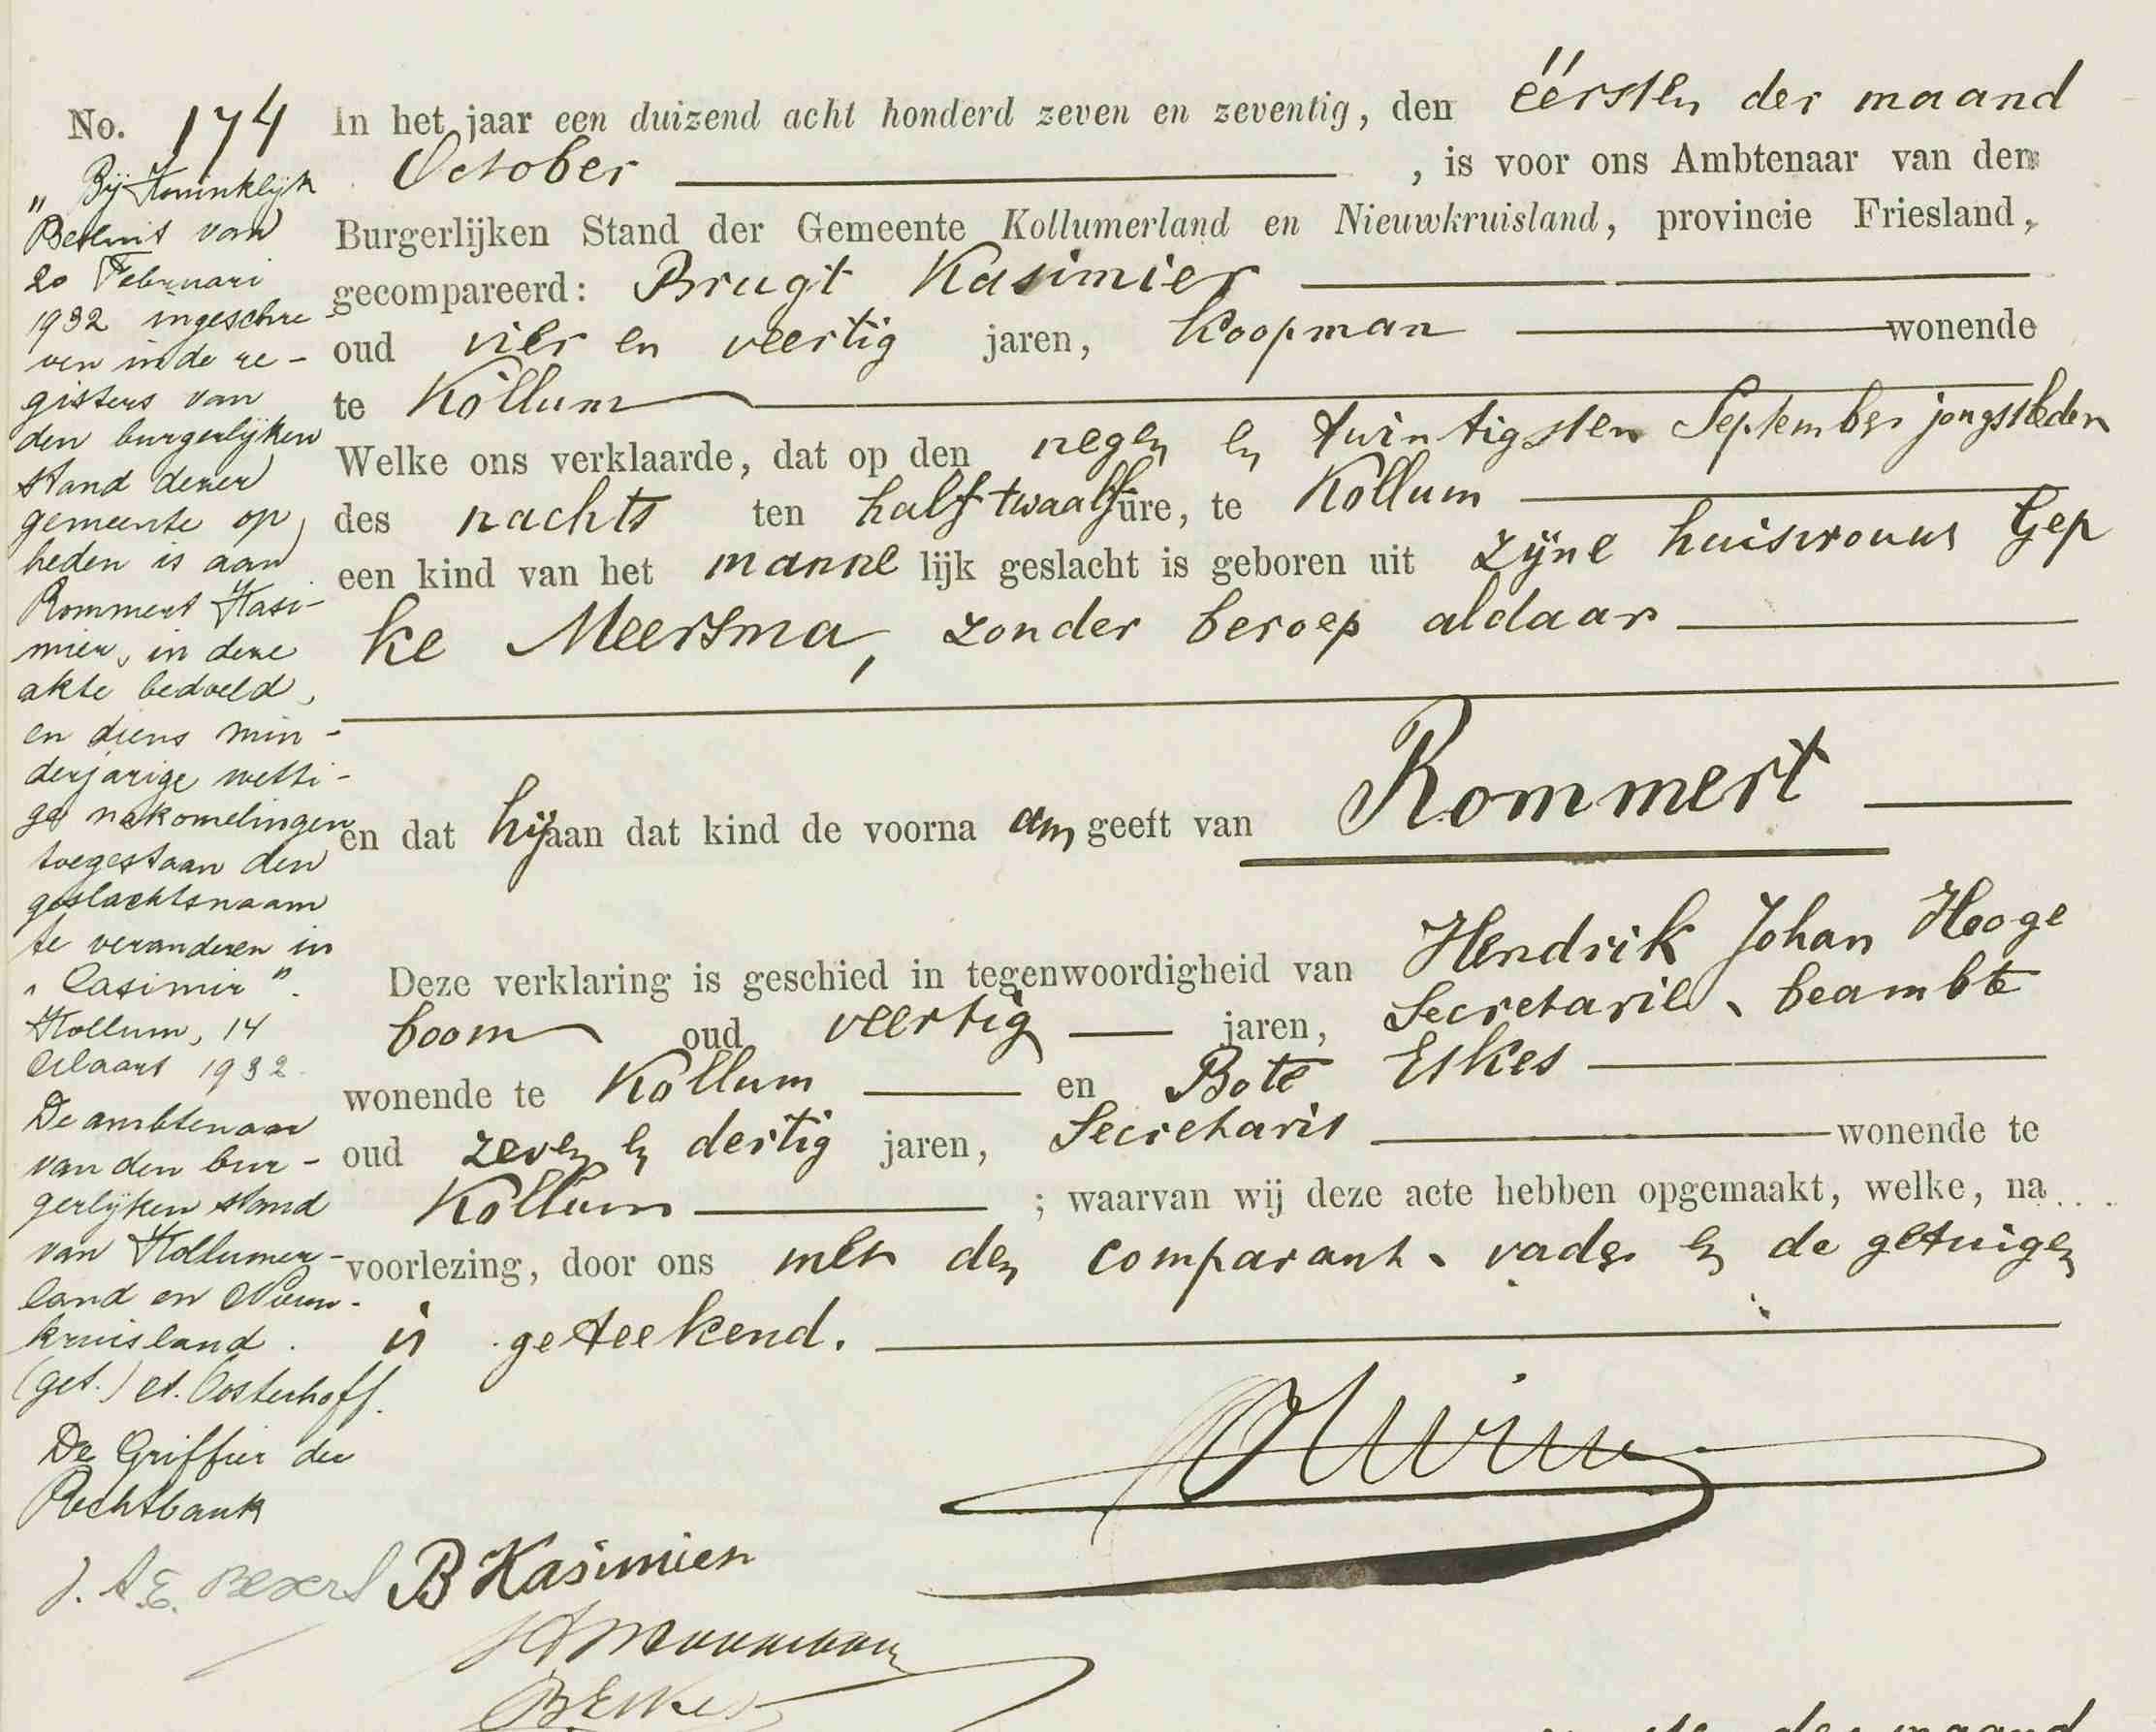 No. 174
"Bij Koninklijk
Besluit van
20 Februari
1932 ingeschre
ven in de re-
gisters van
den burgerlijken
stand dezer
gemeente op
heden is aan
Rommert Kasi-
mier, in deze
akte bedoeld,
en diens min-
derjarige wetti-
ge nakomelingen
toegestaan den
geslachtsnaam
te veranderen in
"Casimir".
Kollum, 14
Maart 1932.
De ambtenaar
van den bur-
gerlijken stand
van Kollumer-
land en Nieuw-
kruisland.
(get.) A. Oosterhoff.
De Griffier der
Rechtbank
In het jaar een duizend acht honderd zeven en zeventig, den eersten der maand
October , is voor ons Ambtenaar van den
Burgerlijken Stand der Gemeente Kollumerland en Nieuwkruisland, provincie Friesland,
gecompareerd: Brugt Kasimier
oud vier en veertig jaren, Koopman wonende
te Kollum
Welke ons verklaarde, dat op den negen en twintigsten September jongstleden
des nachts ten half twaalf ure, te Kollum
een kind van het mannelijk geslacht is geboren uit zijne huisvrouw Gep
ke Meersma, zonder beroep aldaar
en dat hij aan dat kind de voornaam geeft van Rommert
Deze verklaring is geschied in tegenwoordigheid van Hendrik Johan Hooge
boom oud veertig jaren, Secretarie-beambte
wonende te Kollum en Bote Eskes
oud zeven en dertig jaren, Secretaris wonende te
Kollum ; waarvan wij deze acte hebben opgemaakt, welke, na
voorlezing, door ons met den comparant-vader en de getuigen
is geteekend.
B Kasimier
B Eskes
der maand